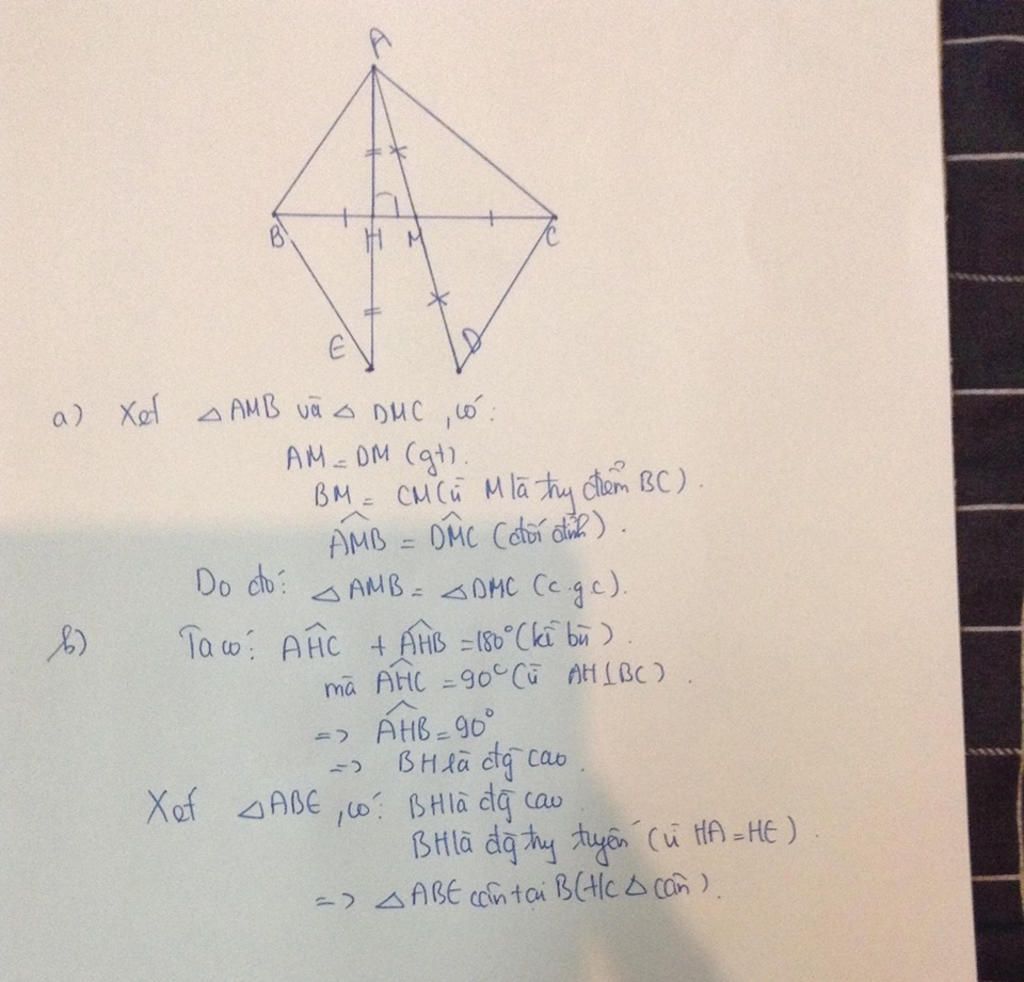 A
B H M C
E D
a) Xét △AMB và △ DMC, có:
AM = DM (gt).
BM = CM (vì M là try điểm BC).
AMB̂ = DMĈ (đối đỉnh).
Do đó: △AMB = △DMC (c.g.c).
b) Ta có: AHĈ + AHB̂ = 180° (kề bù).
mà AHĈ = 90° (vì AH⊥BC).
=> AHB̂ = 90°
=> BH là đg cao.
Xét △ABE, có: BH là đg cao
BH là đg try tuyến (vì HA = HE).
=> △ABE cân tại B (t/c △ cân).